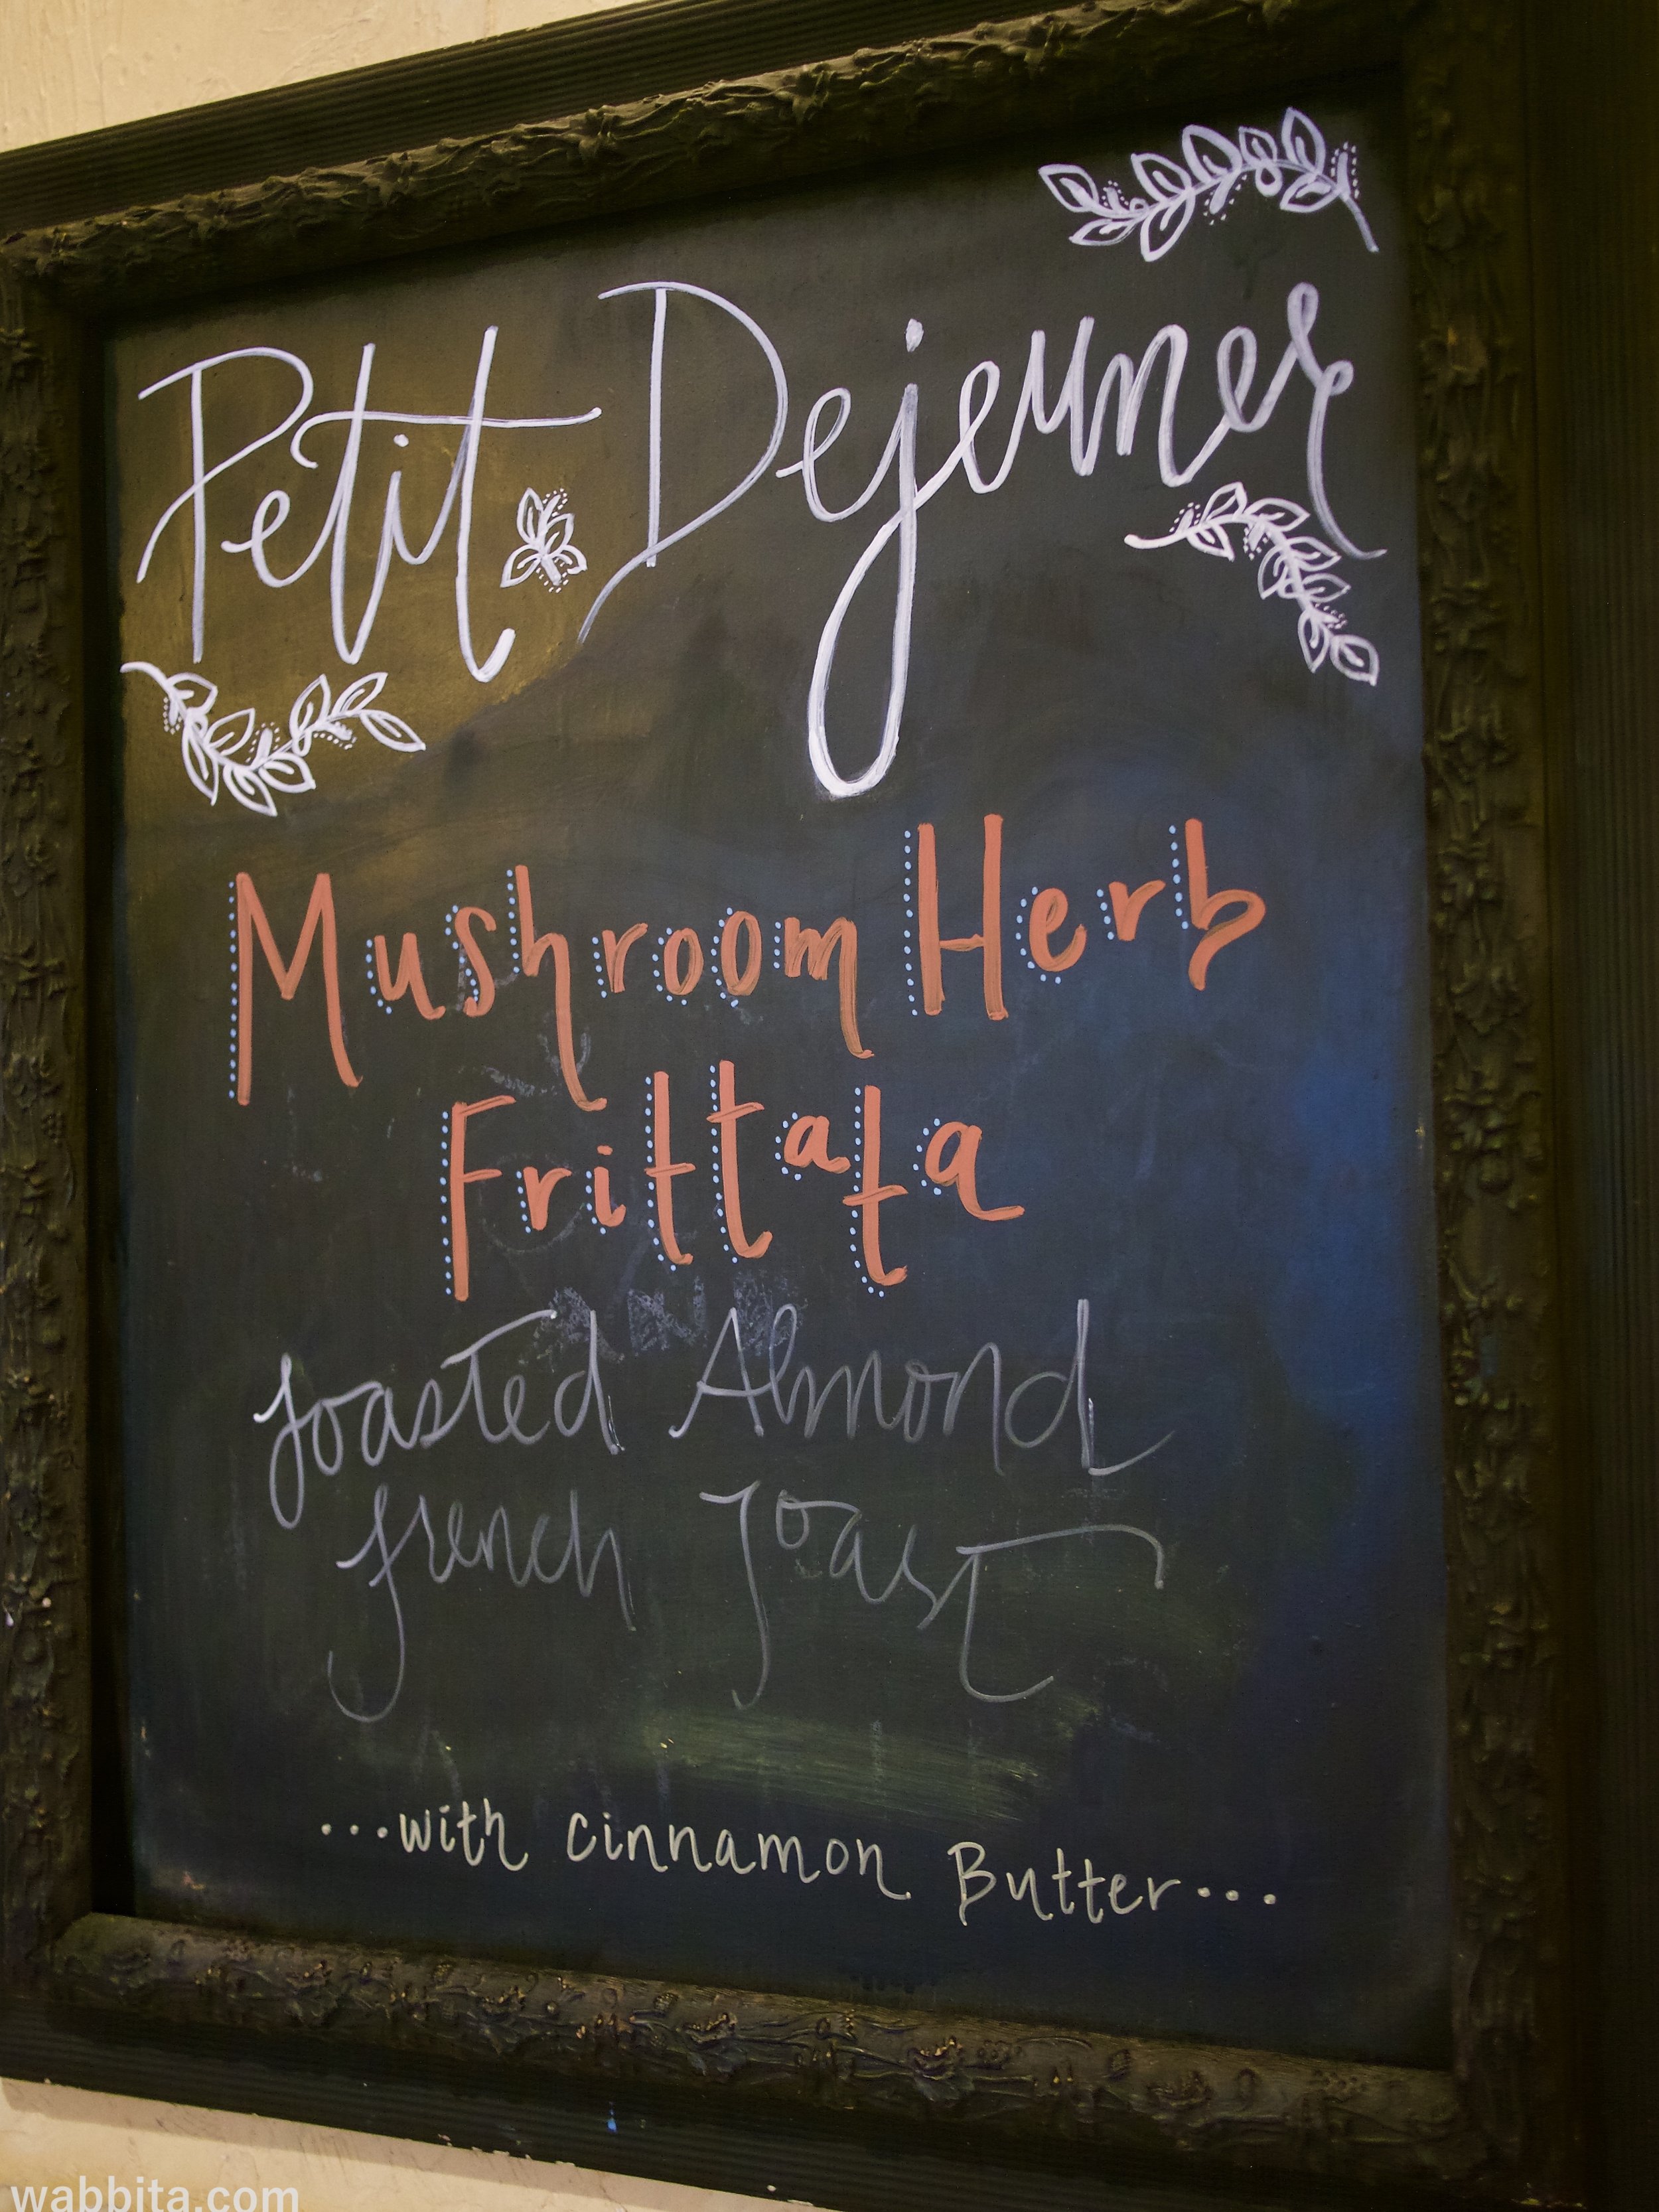 Petit Dejeuner
Mushroom Herb
Frittata
AND
Toasted Almond
French Toast
...with cinnamon Butter...
wabbita.com